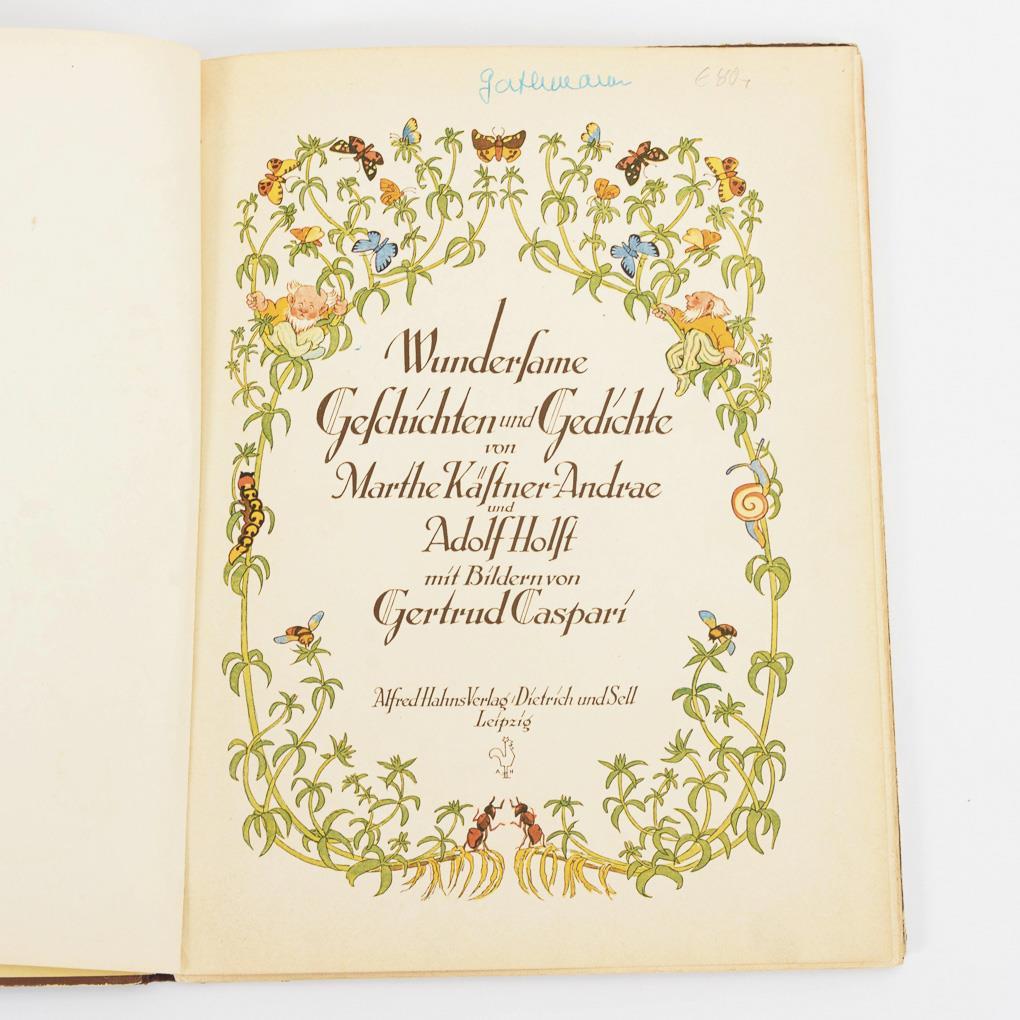 Gathmann
€ 80,-
Wunderſame
Geſchichten und Gedichte
von
Marthe Käſtner-Andrae
und
Adolf Holſt
mit Bildern von
Gertrud Caspari
Alfred Hahns Verlag / Dietrich und Sell
Leipzig
A H